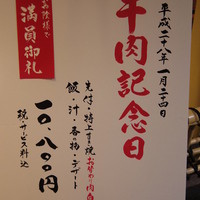 平成二十八年一月二十四日
牛肉記念日
先付・特上すき焼 お替わり肉
飯・汁・香の物・デザート
一〇、八〇〇円
税・サービス料込
お陰様で
満員御礼